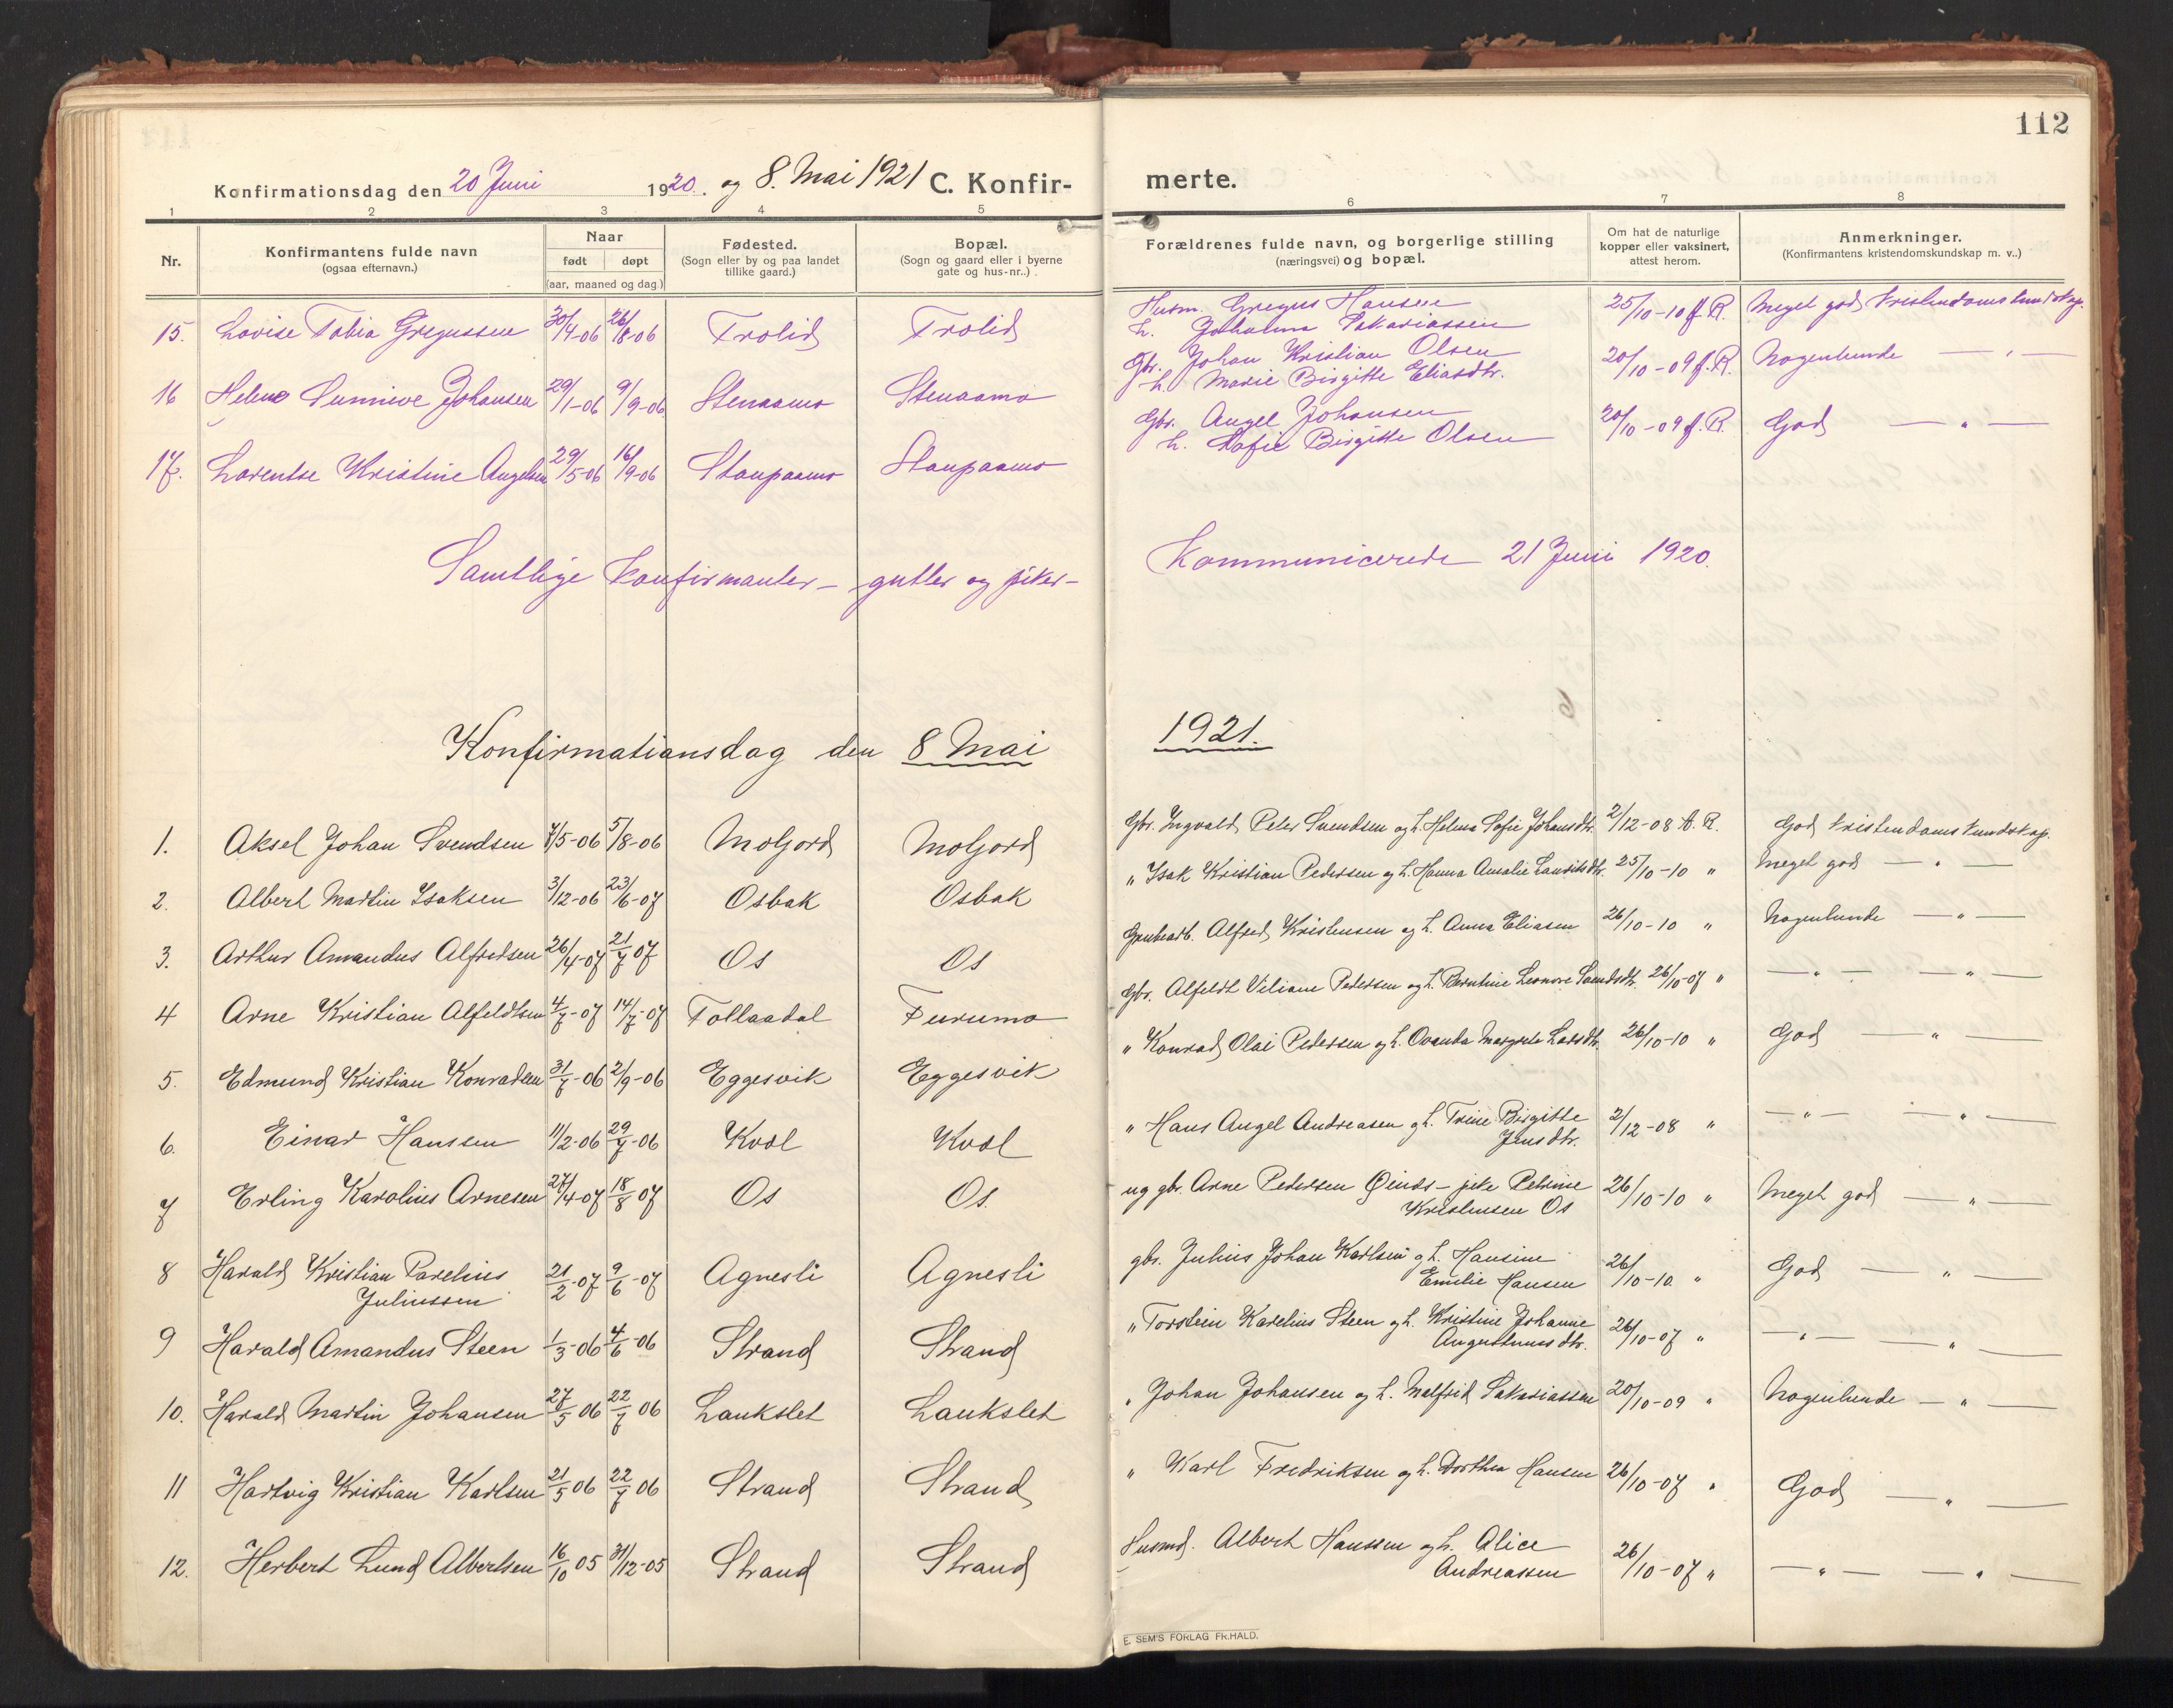 112
Konfirmationsdag den 20 Juni 1920. og 8. Mai 1921 C. Konfir- merte.
1 2 3 4 5 6 7 8
Nr. Konfirmantens fulde navn (ogsaa efternavn.) Naar født døpt (aar, maaned og dag.) Fødested. (Sogn eller by og paa landet tillike gaard.) Bopæl. (Sogn og gaard eller i byerne gate og hus-nr..) Forældrenes fulde navn, og borgerlige stilling (næringsvei) og bopæl. Om hat de naturlige kopper eller vaksinert, attest herom. Anmerkninger. (Konfirmantens kristendomskundskap m. v..)
15. Lovise Tobia Gregussen 30/4-06 26/8-06 Trolid Trolid Husm. Gregus Hansen h. Johanna Sakariassen 25/10-10 f. R. Meget god kristendomskundskap.
16 Helene Sunnive Johansen 29/1-06 9/9-06 Stenaamo Stenaamo Gbr. Johan Kristian Olsen h. Marie Birgitte Eliasdtr. 20/10-09 f. R. Nogenlunde — " —
17. Lorentse Kristine Angelsen 29/5-06 16/9-06 Staupaamo Staupaamo Gbr. Angel Johansen h. Sofie Birgitte Olsen 20/10-09 f. R. God — " —
Samtlige konfirmanter - gutter og piker - kommunicerede 21 Juni 1920.
Konfirmationsdag den 8 Mai 1921.
1. Aksel Johan Svendsen 7/5-06 5/8-06 Moljord Moljord Gbr. Ingvald Peter Svendsen og h. Helene Sofie Johansdtr. 2/12-08 A. R. God kristendomskundskap.
2. Albert Martin Isaksen 3/12-06 23/6-07 Osbak Osbak " Isak Kristian Pedersen og h. Hanna Amalie Lauritsdtr. 25/10-10 " Meget god — " —
3. Arthur Amandus Alfredsen 26/4-07 21/7 07 Os Os Grubearb. Alfred Kristensen og h. Anna Eliasen 26/10-10 " Nogenlunde — " —
4 Arne Kristian Alfeldtsen 4/7-07 14/7-07 Tollaadal Furumo Gbr. Alfeldt Viliam Pedersen og h. Berntine Leonore 26/10-07 " — " — — " —
5. Edmund Kristian Konradsen 31/7-06 2/9-06 Eggesvik Eggesvik " Konrad Olai Pedersen og h. Ovanda Margrete Larsdtr. 26/10-10 " God — " —
6. Einar Hanssen 11/2-06 29/7-06 Kvæl Kvæl " Hans Angel Andreasen og h. Trine Birgitte Jensdtr. 2/12-08 " — " — — " —
7 Erling Karolius Arnesen 27/4-07 18/8 07 Os Os. ug gbr. Arne Pedersen Øines - pike Petrine Kristensen Os 26/10-10 " Meget god — " —
8 Harald Kristian Parelius Juliussen 21/2-07 9/6-07 Agnesli Agnesli gbr. Julius Johan Karlsen og h. Hansine Emilie Hansen 26/10-10. " God — " —
9 Harald Amandus Steen 1/3-06 4/6-06 Strand Strand " Torstein Karelius Steen og h. Kristine Johanne Augustinusdtr. 26/10-07 " — " — — " —
10. Harald Martin Johansen 27/5 06 22/7 06 Laukslet Laukslet " Johan Johansen og h. Malfrid Sakariassen 20/10-09 " Nogenlunde — " —
11 Hartvig Kristian Karlsen 21/5 06 22/7 06 Strand Strand " Karl Fredriksen og h. Dorthea Hansen 26/10-07 " God — " —
12. Herbert Lund Albertsen 16/10 05 31/12-05 Strand Strand Husmd. Albert Hanssen og h. Alice Andreassen 26/10-07 " — " — — " —
E. SEM'S FORLAG FR.HALD.